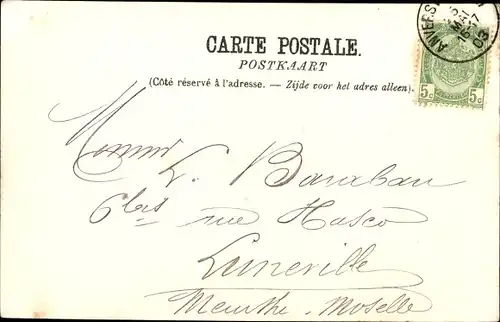 CARTE POSTALE.
POSTKAART
(Côté réservé à l'adresse. — Zijde voor het adres alleen).
ANVERS
MAI
03
5c 5c
L. Baraban
6 bis rue Hasco
Luneville
Meurthe-Moselle